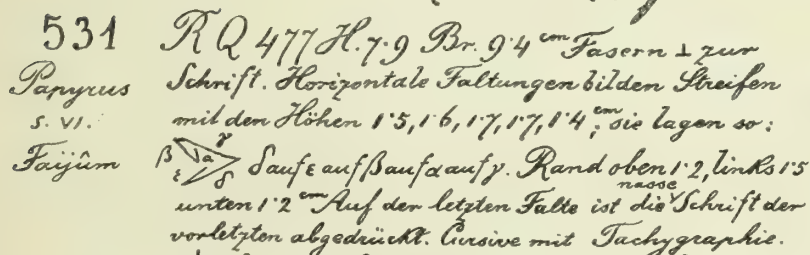 531 R Q 477 H. 7·9 Br. 9·4 cm Fasern ⊥ zur
Papyrus Schrift. Horizontale Faltungen bilden Streifen
s. VI. mit den Höhen 1·5, 1·6, 1·7, 1·7, 1·4 cm; sie lagen so:
Faijûm β γ α ε δ δ auf ε auf β auf α auf γ. Rand oben 1·2, links 1·5
unten 1·2 cm Auf der letzten Falte ist die nasse Schrift der
vorletzten abgedrückt. Cursive mit Tachygraphie.